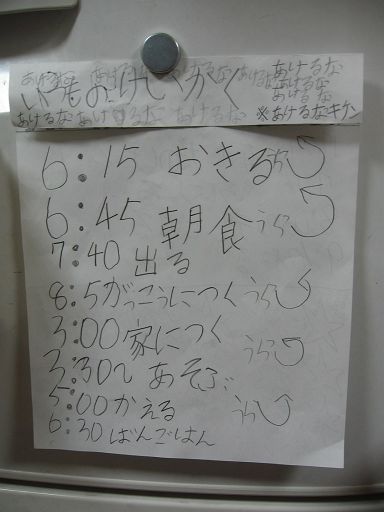 あけるな あけるな あけるな あけるな
いくもおけいかく
あけるな
あけるな
あけるな あけるな あけるな ※あけるなキケン
6:15 おきる うら
6:45 朝食 うら
7:40 出る
8:5がっこうにつく うら
3:00家につく うら
3:30〜あそぶ
5:00かえる うら
6:30ばんごはん